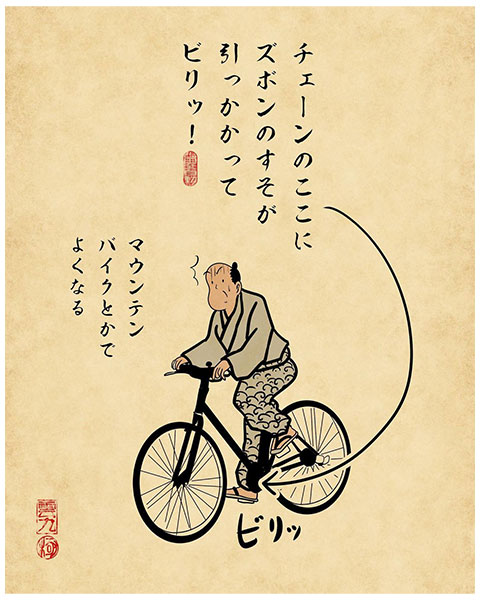 チェーンのここに
ズボンのすそが
引っかかって
ビリッ！
マウンテン
バイクとかで
よくなる
ビリッ